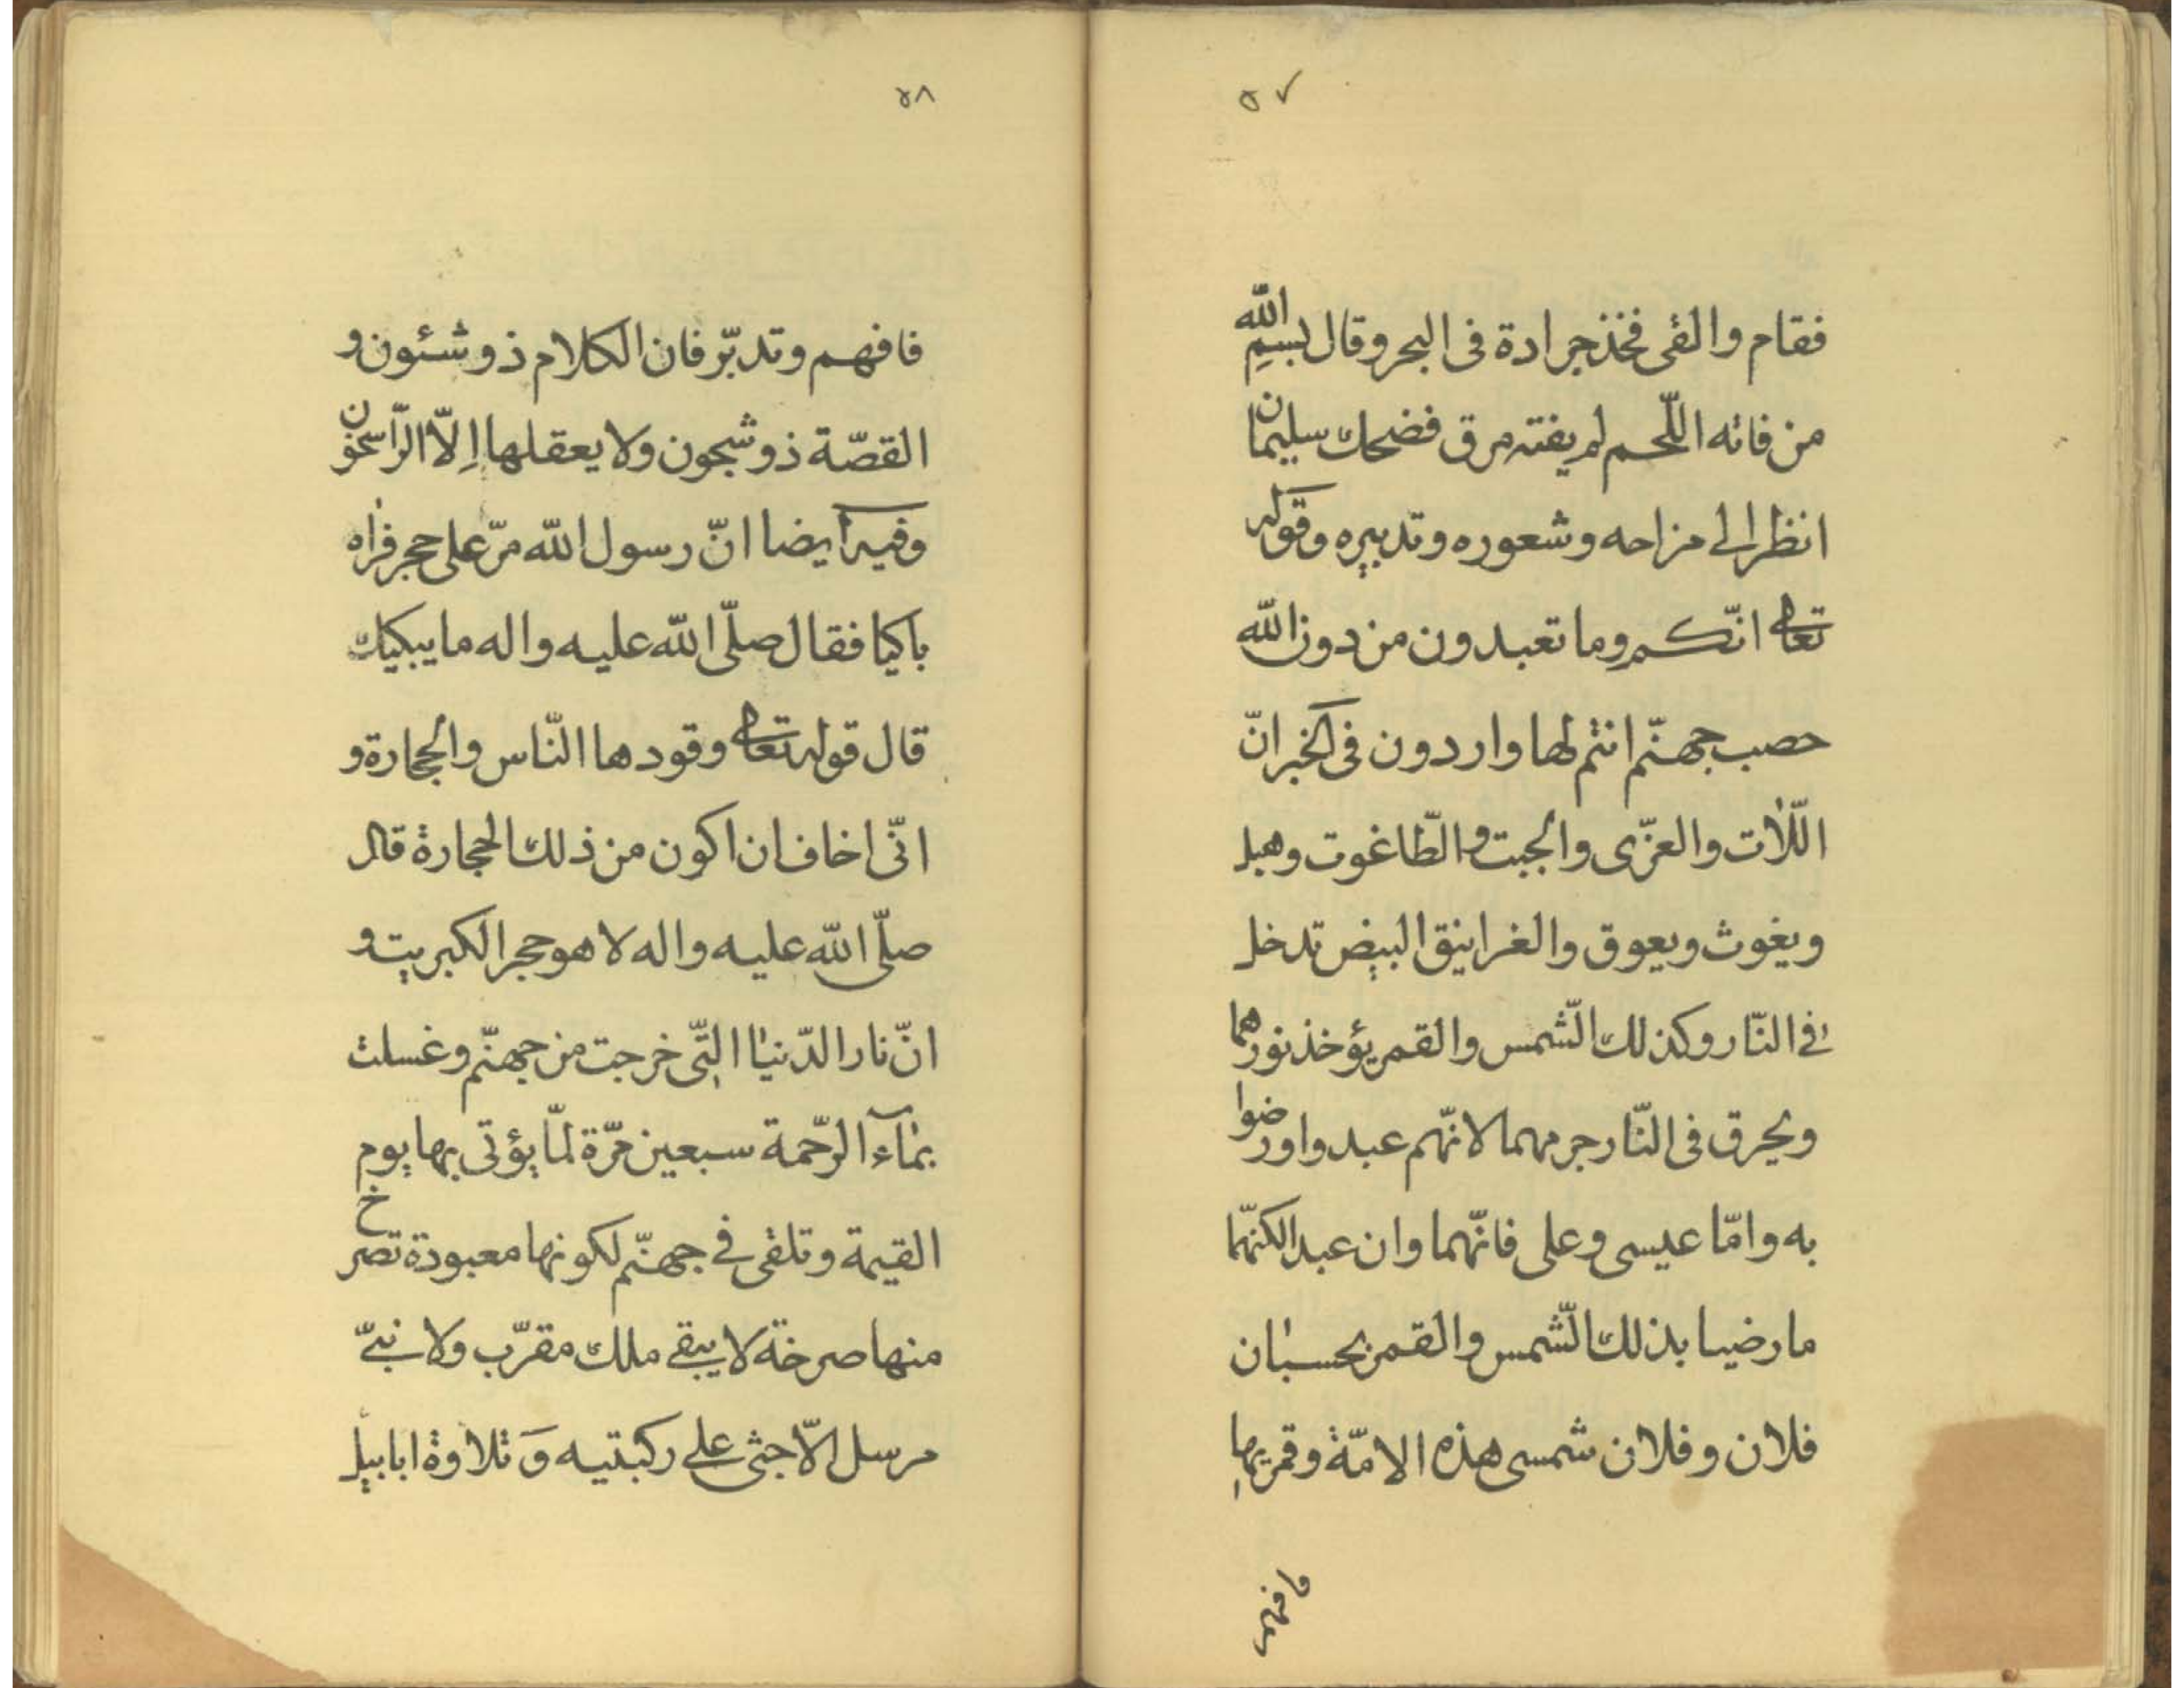 ٥٧
فقام والقى فخذ جرادة فى البحر وقال بسمِ الله
من فاته اللّحم لم يفته مرق فضحك سليمان
انظر الى مزاحه وشعوره وتدبيره وقوله
تعالى انّكم وما تعبدون من دون الله
حصب جهنّم انتم لها واردون فى الخبر انّ
اللّات والعزّى والجبت والطّاغوت وهبل
ويغوث ويعوق والغرانيق البيض تدخل
فى النّار وكذلك الشّمس والقمر يؤخذ نورهما
ويحرق فى النّار جرمهما لانّهم عبدوا ورضوا
به وامّا عيسى وعلى فانّهما وان عبدا لكنّهما
ما رضيا بذلك الشّمس والقمر بحسبان
فلان وفلان شمسى هذه الامّة وقمريها
فافهم
٥٨
فافهم وتدبّر فان الكلام ذو شئون و
القصّة ذو شجون ولا يعقلها اِلّا الرّاسخون
وفيه ايضا انّ رسول الله مرّ على حجر فراه
باكيا فقال صلّى الله عليه واله ما يبكيك
قال قوله تعالى وقودها النّاس والحجارة و
انّى اخاف ان اكون من ذلك الحجارة قال
صلّى الله عليه واله لا هو حجر الكبريت و
انّ نار الدّنيا الّتى خرجت من جهنّم وغسلت
بماء الرّحمة سبعين مرّة لمّا يؤتى بها يوم
القيمة وتلقى فى جهنّم لكونها معبودة تصرخ
منها صرخة لا يبقى ملك مقرّب ولا نبىّ
مرسل الّا جثى على ركبتيه وَ تلاوة ابابيل